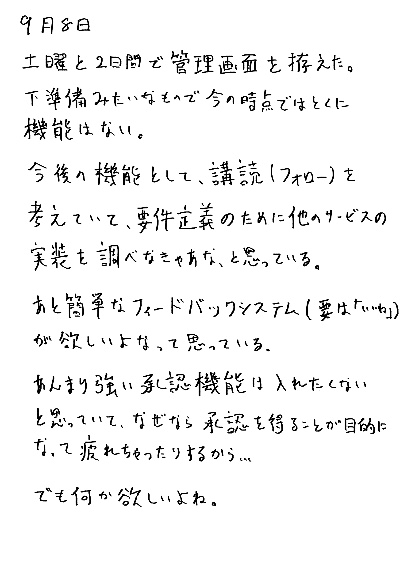 9月8日
土曜と2日間で管理画面を拵えた。
下準備みたいなもので今の時点ではとくに
機能はない。
今後の機能として、講読(フォロー)を
考えていて、要件定義のために他のサービスの
実装を調べなきゃあな、と思っている。
あと簡単なフィードバックシステム(要は「いいね」)
が欲しいよなって思っている。
あんまり強い承認機能は入れたくない
と思っていて、なぜなら承認を得ることが目的に
なって疲れちゃったりするから...
でも何か欲しいよね。